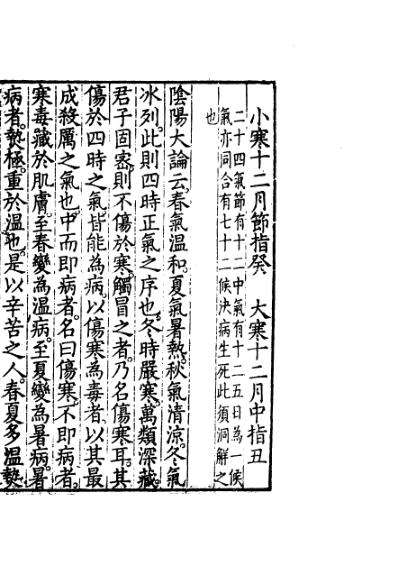 小寒十二月節指癸　大寒十二月中指丑
二十四氣節有十二中氣有十二五日為一候
氣亦同合有七十二候決病生死此須洞解之
也
陰陽大論云春氣溫和夏氣暑熱秋氣清涼冬氣
冰列此則四時正氣之序也冬時嚴寒萬類深藏
君子固密則不傷於寒觸冒之者乃名傷寒耳其
傷於四時之氣皆能為病以傷寒為毒者以其最
成殺厲之氣也中而即病者名曰傷寒不即病者
寒毒藏於肌膚至春變為溫病至夏變為暑病暑
病者熱極重於溫也是以辛苦之人春夏多溫熱